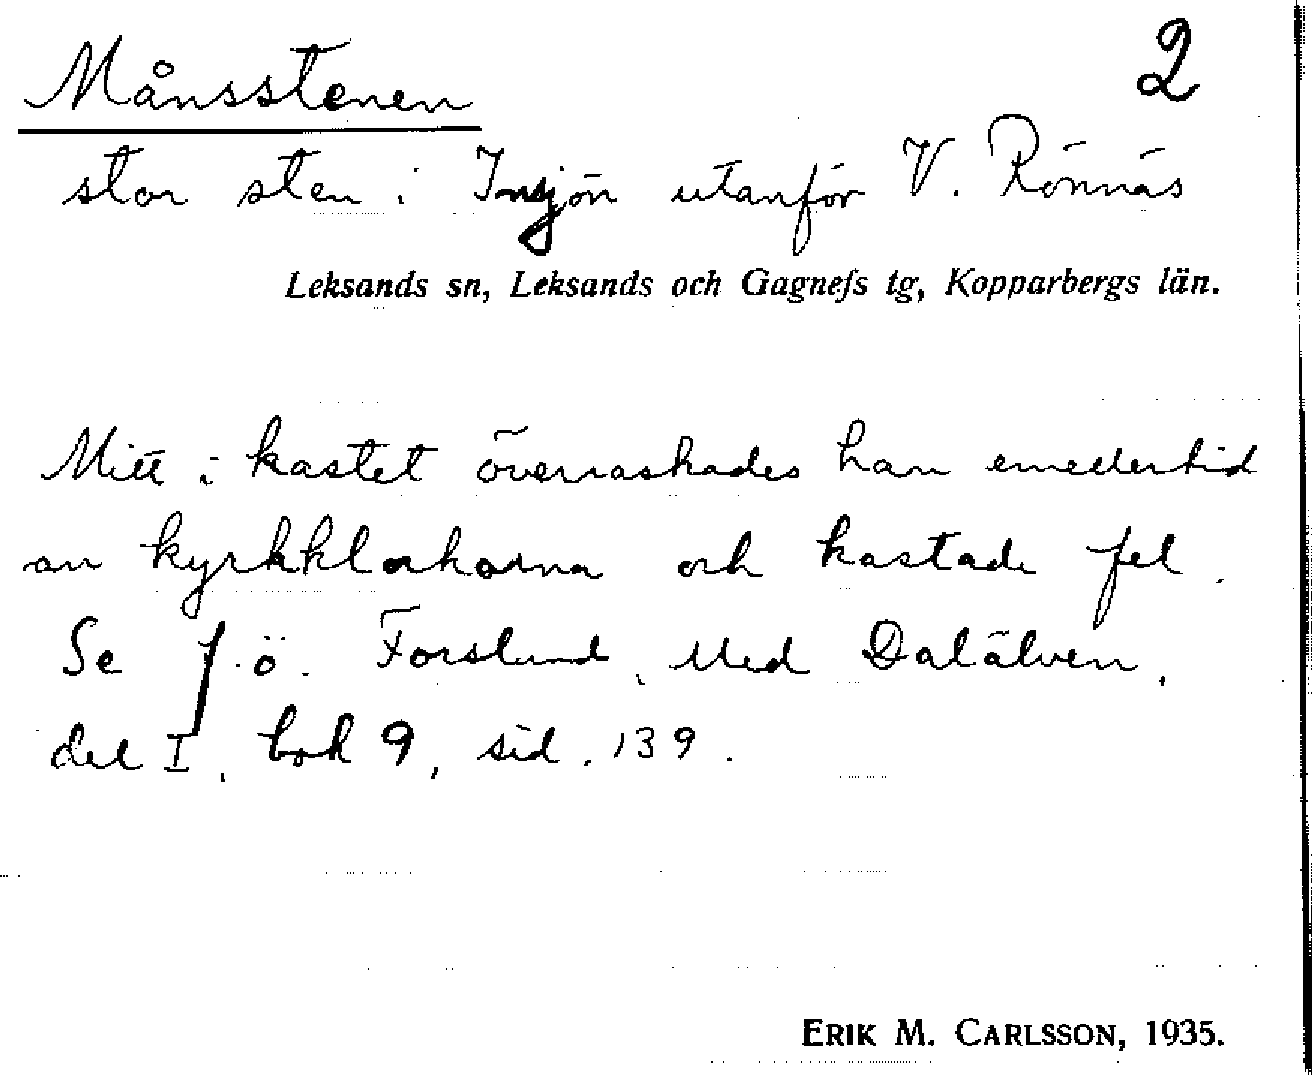 Månsstenen 2
stor sten i Insjön utanför V. Rönnäs
Leksands sn, Leksands och Gagnefs tg, Kopparbergs län.
Mitt i kastet överraskades han emellertid
av kyrkklockorna och kastade fel.
Se f. ö. Forslund, Med Dalälven,
del I, bok 9, sid. 139.
ERIK M. CARLSSON, 1935.